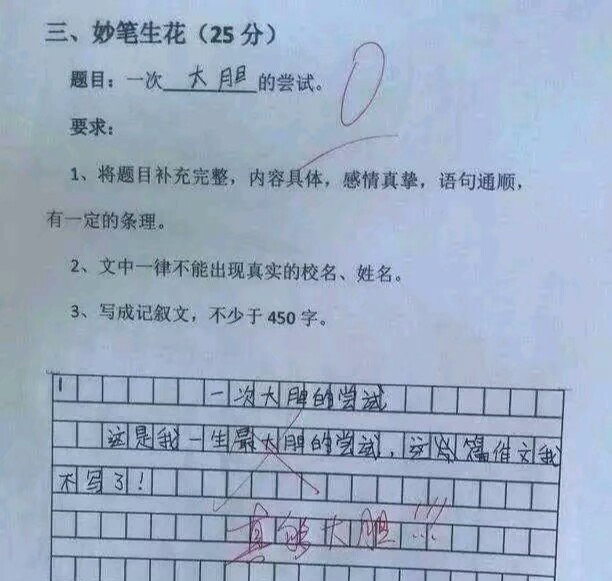 三、妙笔生花（25 分）
题目：一次大胆的尝试。
0
要求：
1、将题目补充完整，内容具体，感情真挚，语句通顺，
有一定的条理。
2、文中一律不能出现真实的校名、姓名。
3、写成记叙文，不少于 450 字。
1
一次大胆的尝试
这是我一生最大胆的尝试，这篇作文我
不写了！
真够大胆!!!